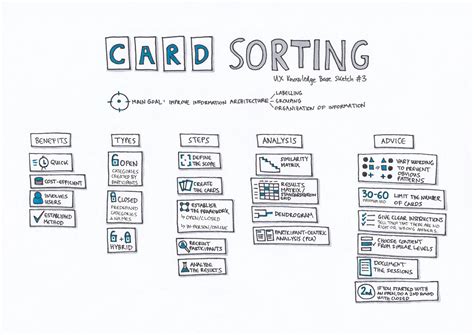 CARD SORTING
UX Knowledge Base Sketch #3
MAIN GOAL: IMPROVE INFORMATION ARCHITECTURE
LABELLING
GROUPING
ORGANIZATION OF INFORMATION
BENEFITS
QUICK
COST-EFFICIENT
INVOLVES
USERS
ESTABLISHED
METHOD
TYPES
OPEN
CATEGORIES
CREATED BY
PARTICIPANTS
CLOSED
PREDEFINED
CATEGORIES
& NAMES
HYBRID
STEPS
DEFINE
THE SCOPE
CREATE
THE CARDS
ESTABLISH
THE FRAMEWORK
OPEN/CLOSED
IN-PERSON/ONLINE
RECRUIT
PARTICIPANTS
ANALYSE
THE RESULTS
ANALYSIS
SIMILARITY
MATRIX
RESULTS
MATRIX/
STANDARDIZATION
GRID
DENDROGRAM
PARTICIPANT-CENTRIC
ANALYSIS (PCA)
ADVICE
VARY WORDING
TO PREVENT
OBVIOUS
PATTERNS
30-60
LIMIT THE NUMBER
OF CARDS
GIVE CLEAR INSTRUCTIONS
TELL THEM THAT THERE ARE NO
RIGHT OR WRONG ANSWERS
CHOOSE CONTENT
FROM SIMILAR LEVELS
DOCUMENT
THE SESSIONS
2nd
IF YOU STARTED WITH
AN OPEN, DO A 2ND ROUND
WITH CLOSED